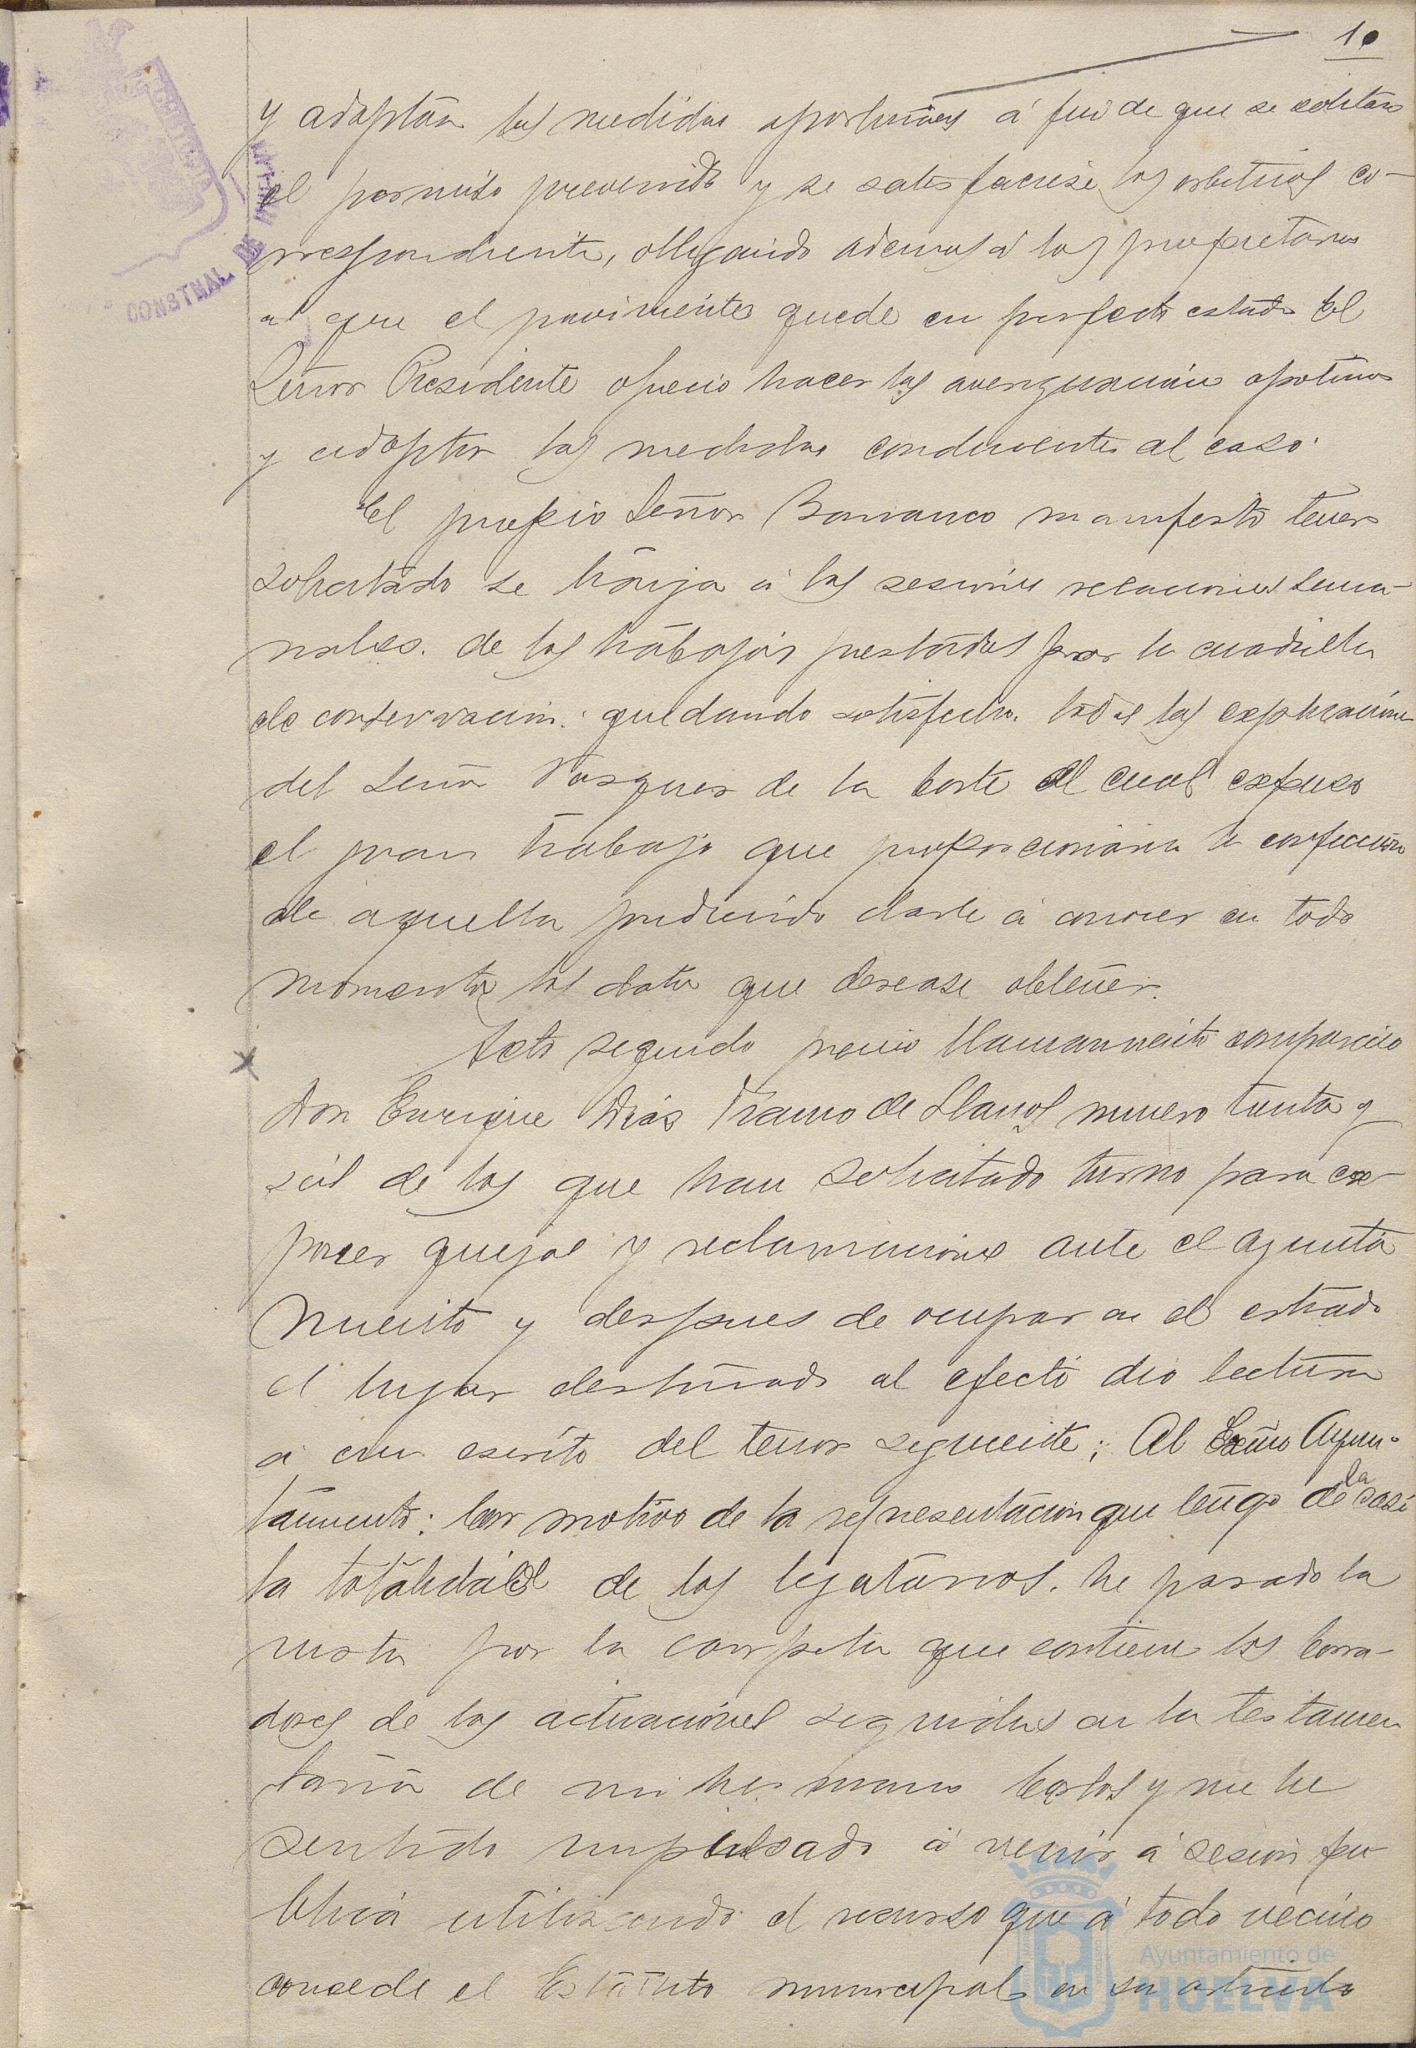 10
y adoptára las medidas oportunas á fin de que se solitara
el permiso prevenido y se satisfaciese los arbitrios co-
rrespondiente, obligando ademas á los propietarios
a que el pavimento quede en perfecto estado El
Señor Presidente ofrecio hacer las averiguacion oportunas
y adoptar las medidas conducentes al caso.
El propio Señor Barranco manifesto tener
solicitado se traiga á las sesiones relaciones sema-
nales. de los trabajos prestados por la cuadrilla
de conservacion. quedando satisfecho todas las explicaciones
del Señor Vazquez de la Corte el cual expuso
el gran trabajo que proporcionaria la confeccion
de aquella pudiendo darle á conocer en todo
momento los datos que desease obtener.
Acto seguido previo llamamiento comparecio
Don Enrique Diás Franco de Llanos numero treinta y
seis de los que han solicitado turno para ex-
poner quejas y reclamaciones ante el ayunta
miento y despues de ocupar en el estrado
el lugar destinado al efecto dio lectura
a un escrito del tenor siguiente; Al Excmo Ayun-
tamiento: Con motivo de la representacion que tengo de la casi
la totalidad de los legatarios. he pasado la
vista por la carpeta que contiene los borra-
dores de las actuaciones seguidas en la testamen
taria de mi hermano Carlos y me he
sentido impulsado á venir á sesion pu
blica utilizando el recurso que á todo vecino
concede el Estatuto municipal en su articulo
CONSTNAL DE
Ayuntamiento de
HUELVA